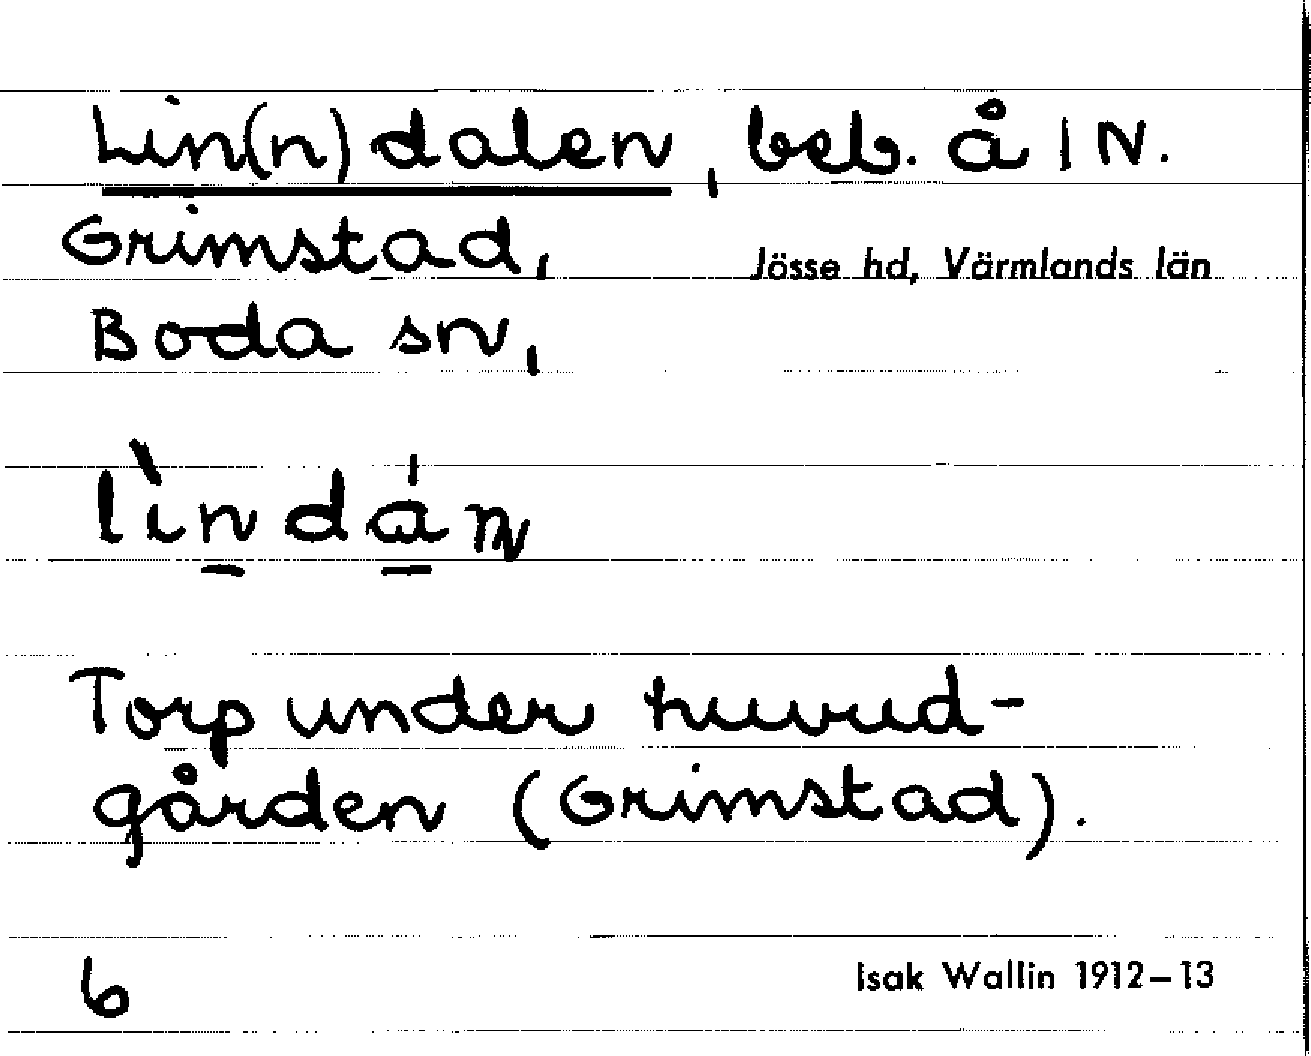 Lin(n)dalen, beb. å 1 N.
Grimstad, Jösse hd, Värmlands län
Boda sn,
lìndán
Torp under huvud-
gården (Grimstad).
6 Isak Wallin 1912–13